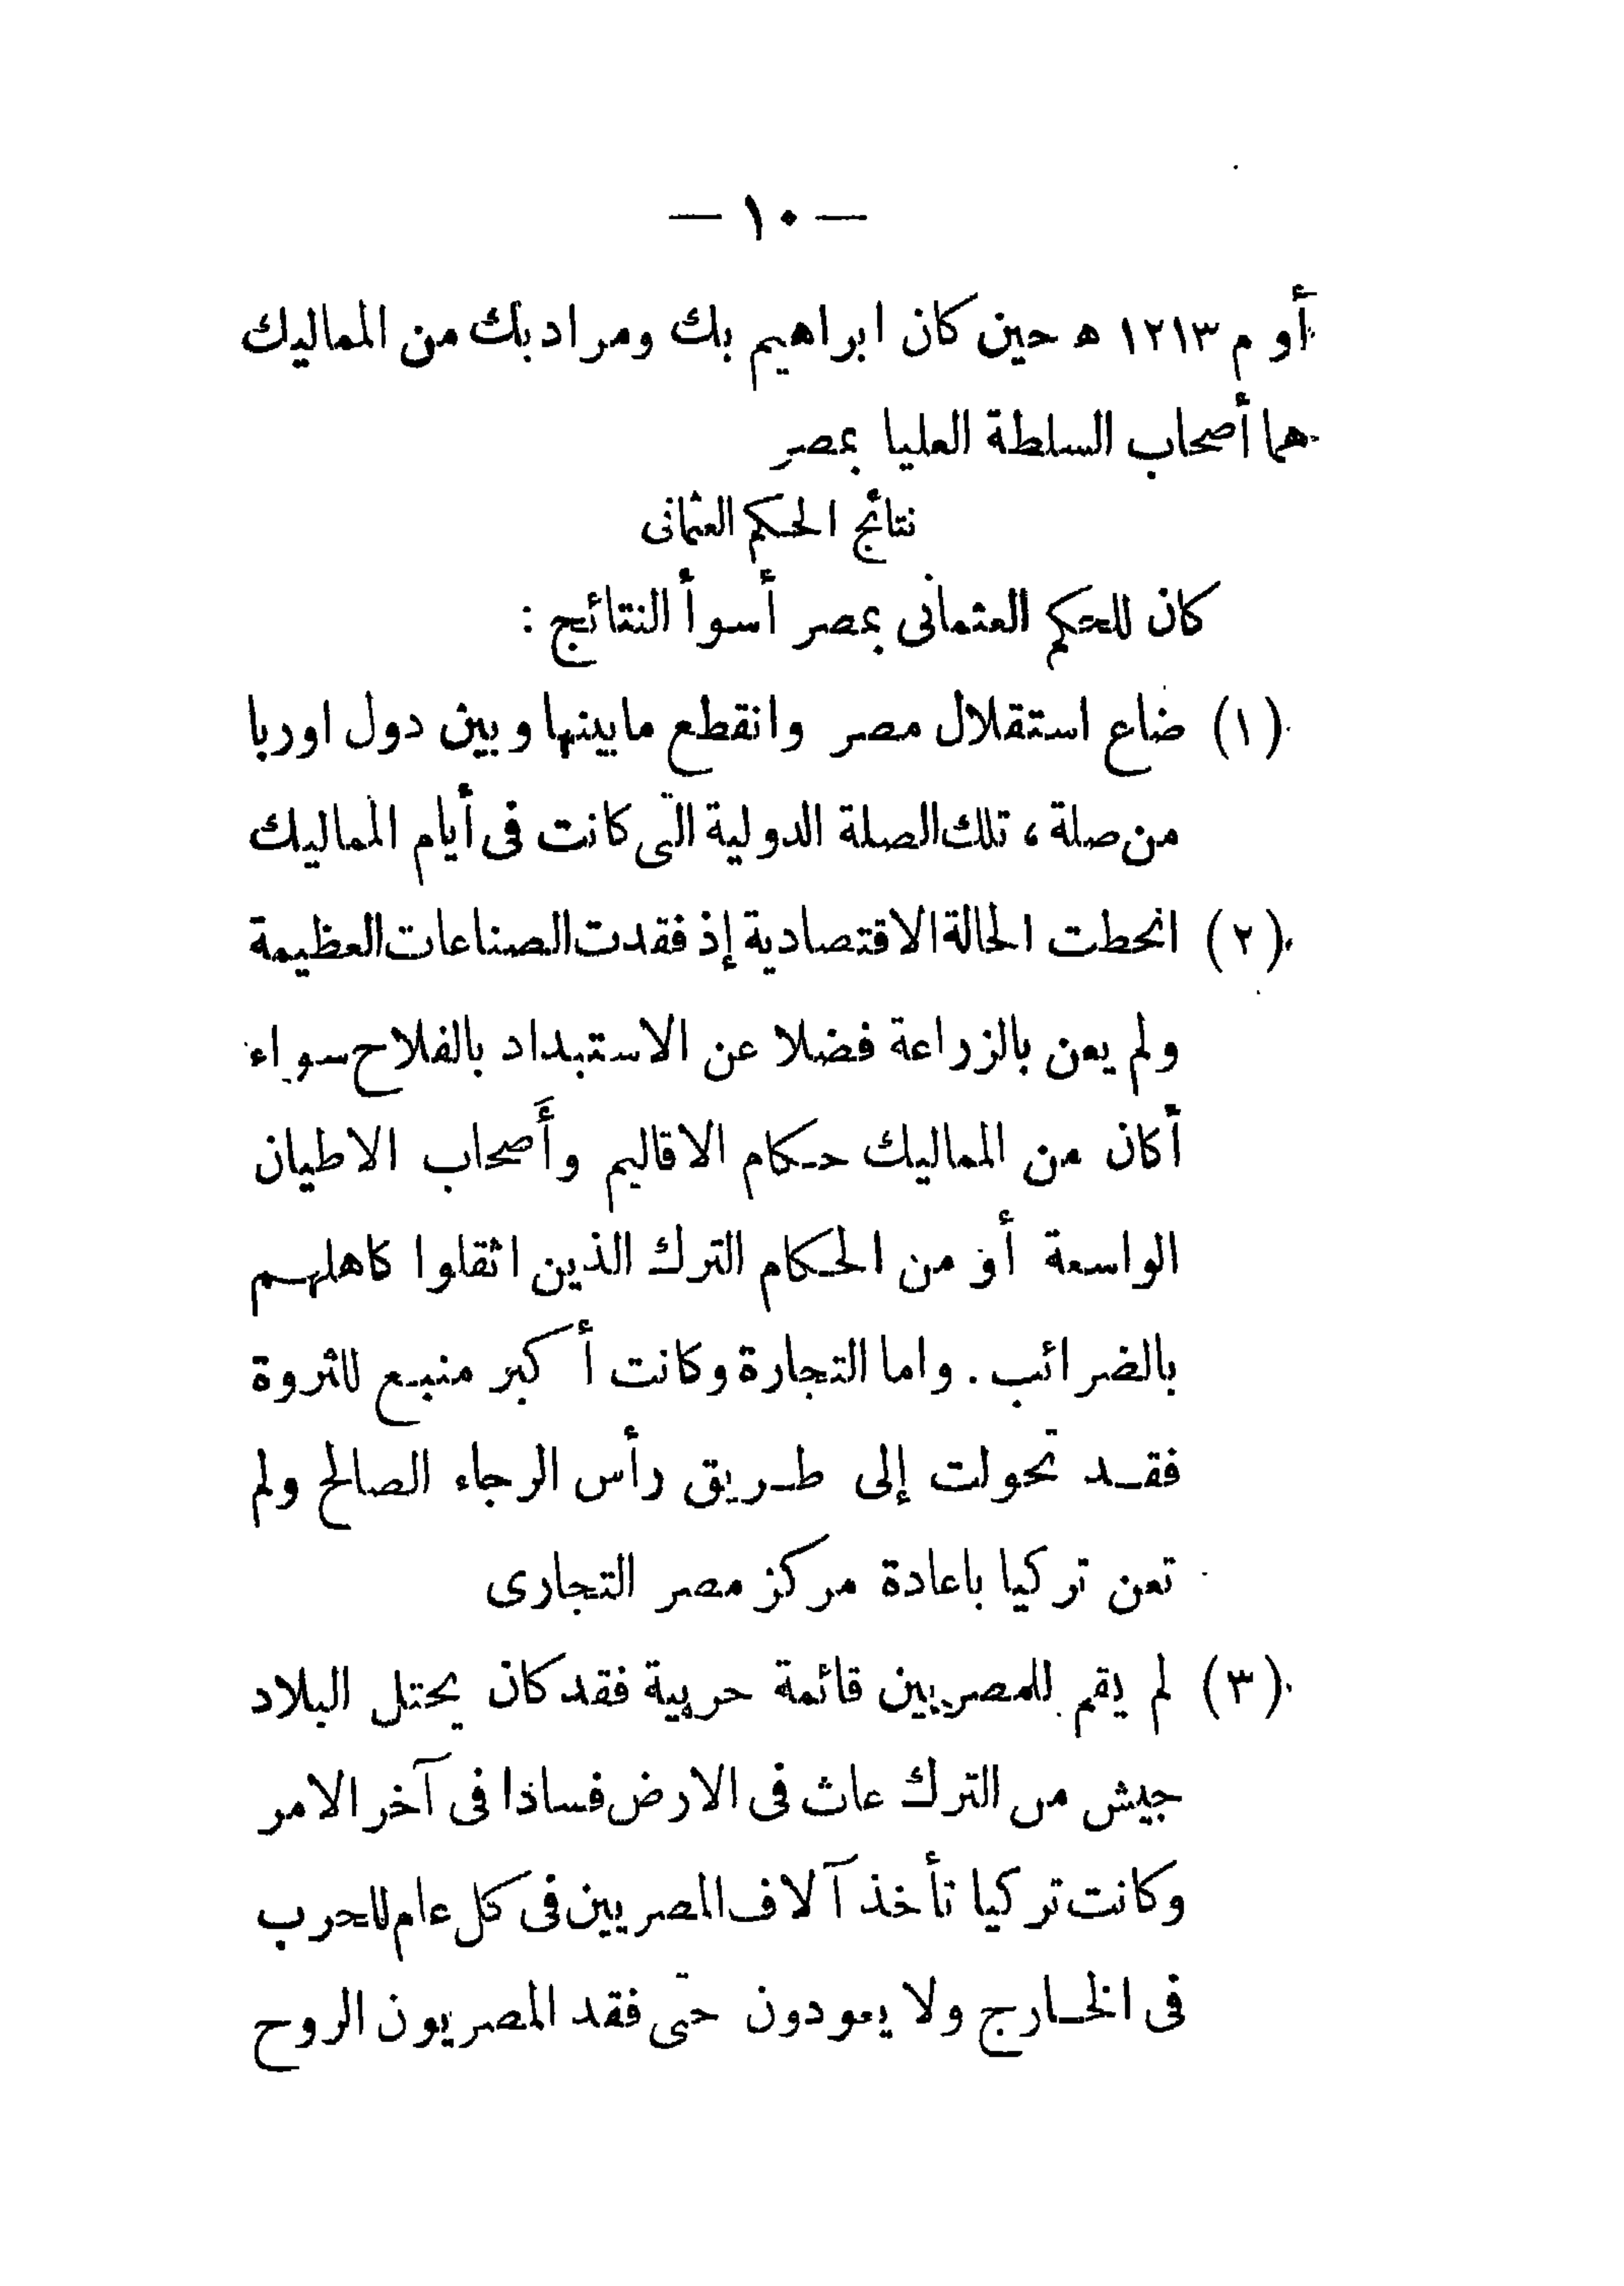 — ١٠ —
أو م ١٢١٣ ه حين كان ابراهيم بك ومراد بك من المماليك
هما أصحاب السلطة العليا بمصر
نتائج الحكم العثمانى
كان للحكم العثمانى بمصر أسوأ النتائج :
(١) ضاع استقلال مصر وانقطع مابينها وبين دول اوربا
من صلة ، تلك الصلة الدولية التى كانت فى أيام المماليك
(٢) انحطت الحالة الاقتصادية إذ فقدت الصناعات العظيمة
ولم يعن بالزراعة فضلا عن الاستبداد بالفلاح سواء
أكان من المماليك حكام الاقاليم وأصحاب الاطيان
الواسعة أو من الحكام الترك الذين اثقلوا كاهلهم
بالضرائب . واما التجارة وكانت أكبر منبع للثروة
فقد تحولت إلى طريق رأس الرجاء الصالح ولم
تعن تركيا باعادة مركز مصر التجارى
(٣) لم يقم للمصريين قائمة حربية فقد كان يحتل البلاد
جيش من الترك عاث فى الارض فسادا فى آخر الامر
وكانت تركيا تأخذ آلاف المصريين فى كل عام للحرب
فى الخارج ولا يعودون حتى فقد المصريون الروح